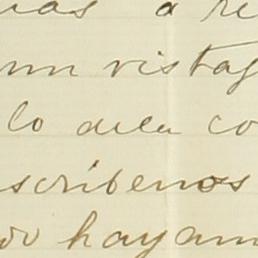 a re
un vistaz
lo dela co
scribenos
do hayam